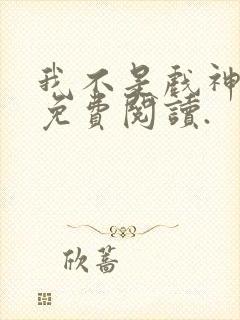 我不是戲神
免費閱讀.
欣蕎